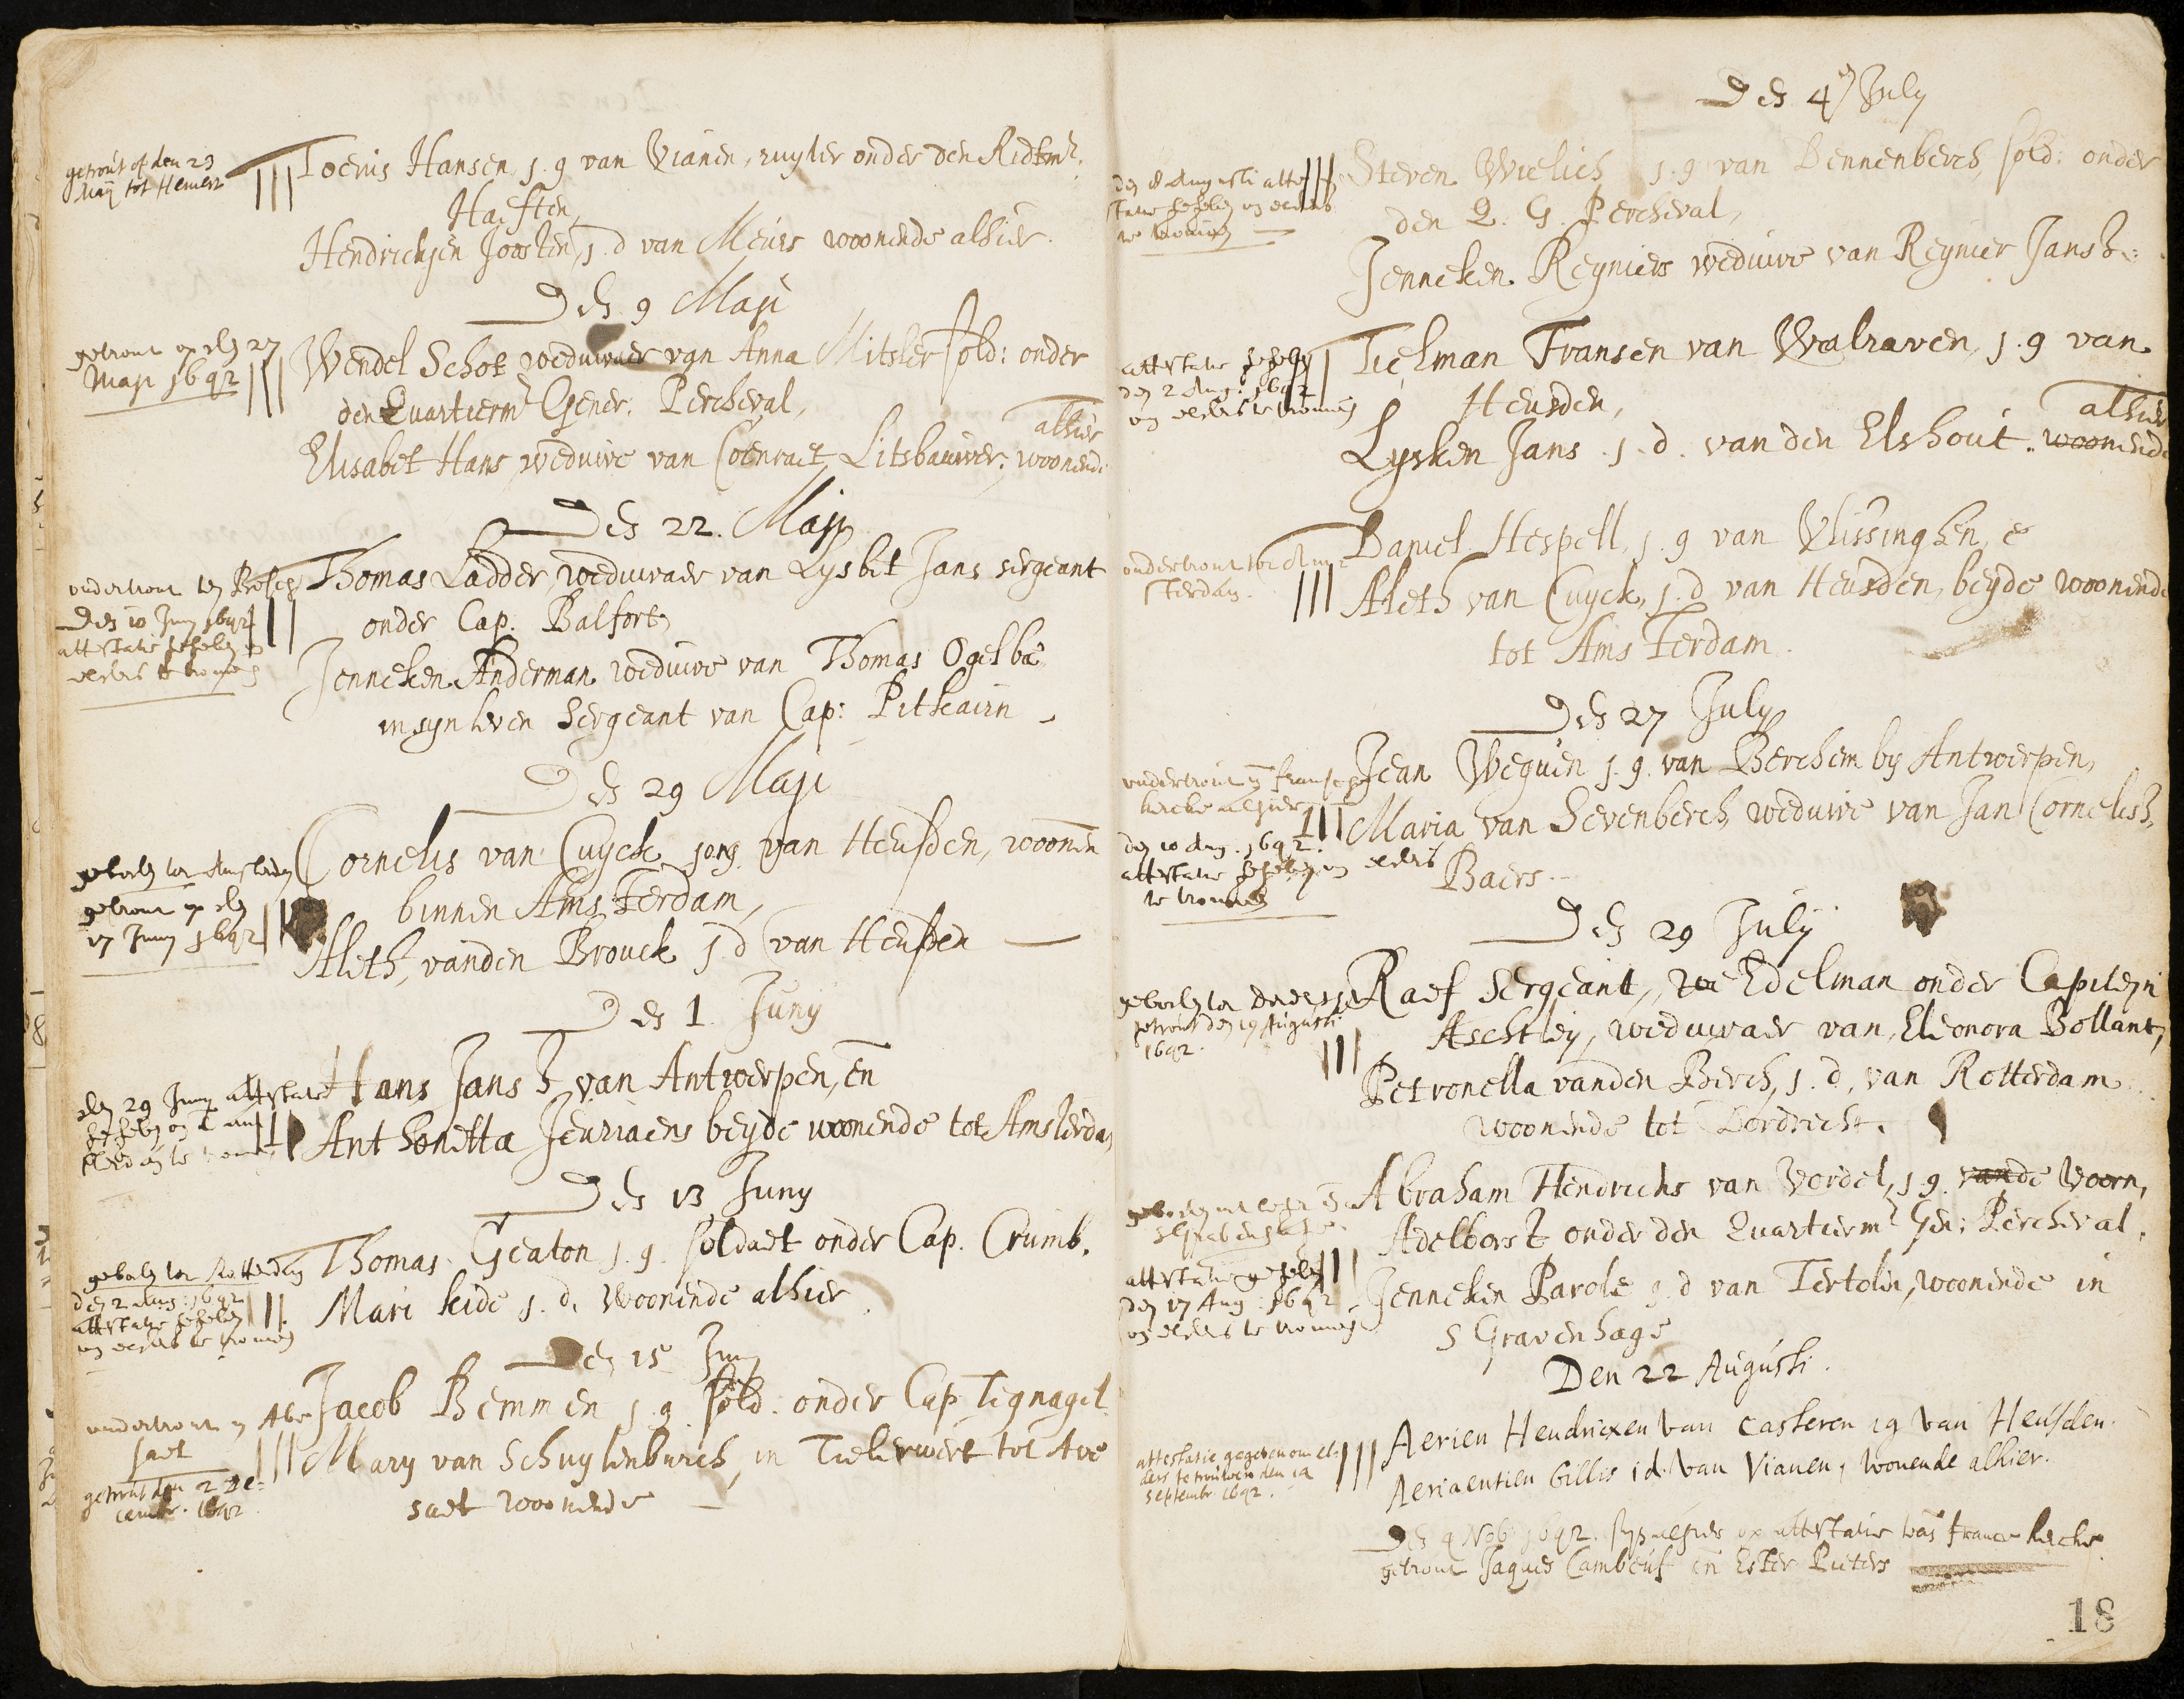 getrout op den 23
Maij tot Hemert
Toenis Hansen j. g van Vianen, ruyter onder den Ridtmr.
Haeften,
Hendrickjen Joosten, j. d van Meurs woonende alhier.
Den 9 Maji
getrout op den 27
Maji 1642
Wendel Schot weduwaer van Anna Mitsler sold: onder
den Quartierm.r Gener. Percheval,
alhier
Elisabet Hans weduwe van Coenraet Litsbauwer, woonende
Den 22. Maji
ondertrout ten Bosch
Den 10 Juny 1642
attestatie gegeben om
elders te trouwen
Thomas Ladder, weduwaer van Lysbet Jans sergeant
onder Cap. Balfort,
Jenneken Anderman weduwe van Thomas Ogelbe
in syn leven Sergeant van Cap: Pitkairn
Den 29 Maji
geboden tot Amsterdam
getrout op den
17 Juny 1642
Cornelis van Cuyck, jong. van Heusden, woonen
binnen Amsterdam,
Aleth, vanden Brouck j d van Heusden
Den 1. Juny
den 29 Juny attestatie
gegeben om t Am
sterdam te trouwen
Hans Jansz van Antwerpen, en
Anthonetta Jeuriaens beyde woonende tot Amsterdam
Den 13 Juny
geboden tot Rotterdam
den 2 Aug: 1642
attestatie gegeben
om elders te trouwen
Thomas Geaton j. g. soldaet onder Cap. Crumb.
Mari keide j. d. Woonende alhier
Den 15 Juny
ondertrout in Ave
saet
getrout den 2 De-
cembr. 1642
Jacob Bemmen j. g. sold. onder Cap Tegnagel
Mary van Schuylenburch, in Tielerwert tot Ave
saet woonende
Den 4 July
den 8 Augusti atte
statie gegeben om elders
te trouwen
Steven Wielich j. g van Bennenberch, sold: onder
den Q. G. Percheval,
Jenneken Reyniers weduwe van Reynier Jansz.
attestatie gegeben
den 2 Aug: 1642
om elders te trouwen
Tielman Fransen van Walraven, j. g van
Heusden,
alhier
Lysken Jans. j. d. van den Elshout. woonende
ondertrout tot Am
sterdam.
Daniel Hespell, j. g van Vlissinghen, e
Aleth van Cuyck, j. d van Heusden, beyde woonende
tot Amsterdam.
Den 27 July
ondertrout in franse
kercke alhier
den 10 Aug. 1642.
attestatie gegeben om elders
te trouwen
Jean Weguen j. g. van Berchem by Antwerpen,
Maria van Sevenberch, weduwe van Jan Cornelisz.
Baers.
Den 29 July
geboden tot Dordrecht
getrout den 19 Augusti
1642.
Raef Sergeant, Edelman onder Capiteyn
Aschtley, weduwaer van, Eleonora Bollant,
Petronella vanden Berch, j. d, van Rotterdam
woonende tot Dordrecht.
geboden
sGravenhage.
attestatie gegeben
den 17 Aug: 1642
om elders te trouwen
Abraham Hendricks van Verdel, j g. vande Voorn,
Adelborst onder den Quartierm.r Gen: Percheval.
Jenneken Parole j. d van Tertolen, woonende in
s Gravenhage
Den 22 Augusti.
attestatie gegeven om el-
ders te trouwen den 14
septembr 1642.
Aerien Hendricxen van Casteren jg van Heusden.
Aeriaentien Gillis jd. van Vianen, wonende alhier.
Den 9 Nob 1642. syn alhier op attestatie van france kercke
getrout Jaques Cambeuf en Ester Pieters
18